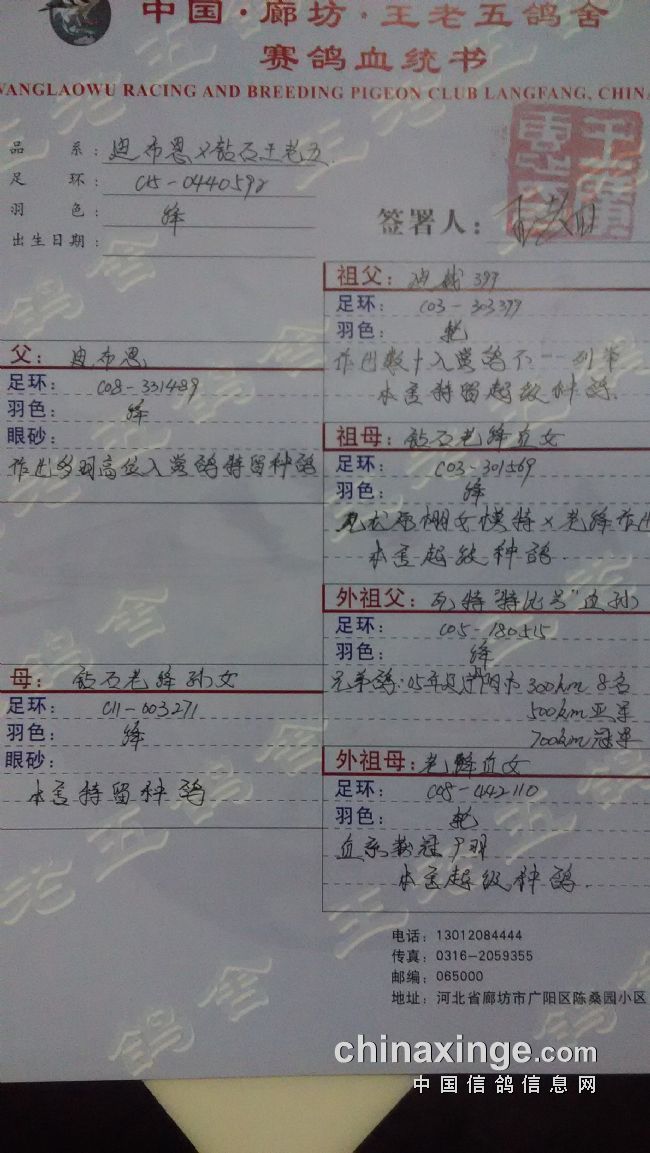 中国·廊坊·王老五鸽舍
赛鸽血统书
WANGLAOWU RACING AND BREEDING PIGEON CLUB LANGFANG, CHINA
品系：迪布恩×钻石王老五
足环：C15-0440592
羽色：绛
出生日期：
签署人：
父：迪布恩
足环：C08-331489
羽色：绛
眼砂：
作出多羽高位入赏鸽特留种鸽
母：钻石老绛孙女
足环：C11-003271
羽色：绛
眼砂：
本舍特留种鸽
祖父：399
足环：C03-303399
羽色：
作出数十入赏鸽不一列节
本舍特留超级种鸽.
祖母：钻石老绛直女
足环：C03-301569
羽色：绛
女模特×老绛作出
本舍超级种鸽.
外祖父："特比号"直孙
足环：C05-180515
羽色：绛
兄弟鸽：05年 300km 8名
500km亚军
700km冠军
外祖母：老绛直女
足环：C08-442110
羽色：
血系数冠
本舍超级种鸽.
电话：13012084444
传真：0316-2059355
邮编：065000
地址：河北省廊坊市广阳区陈桑园小区
chinaxinge.com
中国信鸽信息网